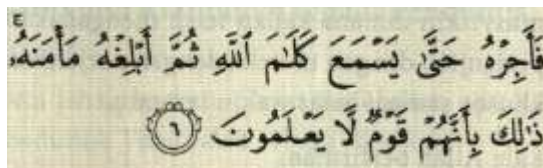 فَأَجِرْهُ حَتَّىٰ يَسْمَعَ كَلَٰمَ ٱللَّهِ ثُمَّ أَبْلِغْهُ مَأْمَنَهُۥ
ذَٰلِكَ بِأَنَّهُمْ قَوْمٌ لَّا يَعْلَمُونَ ۝٦